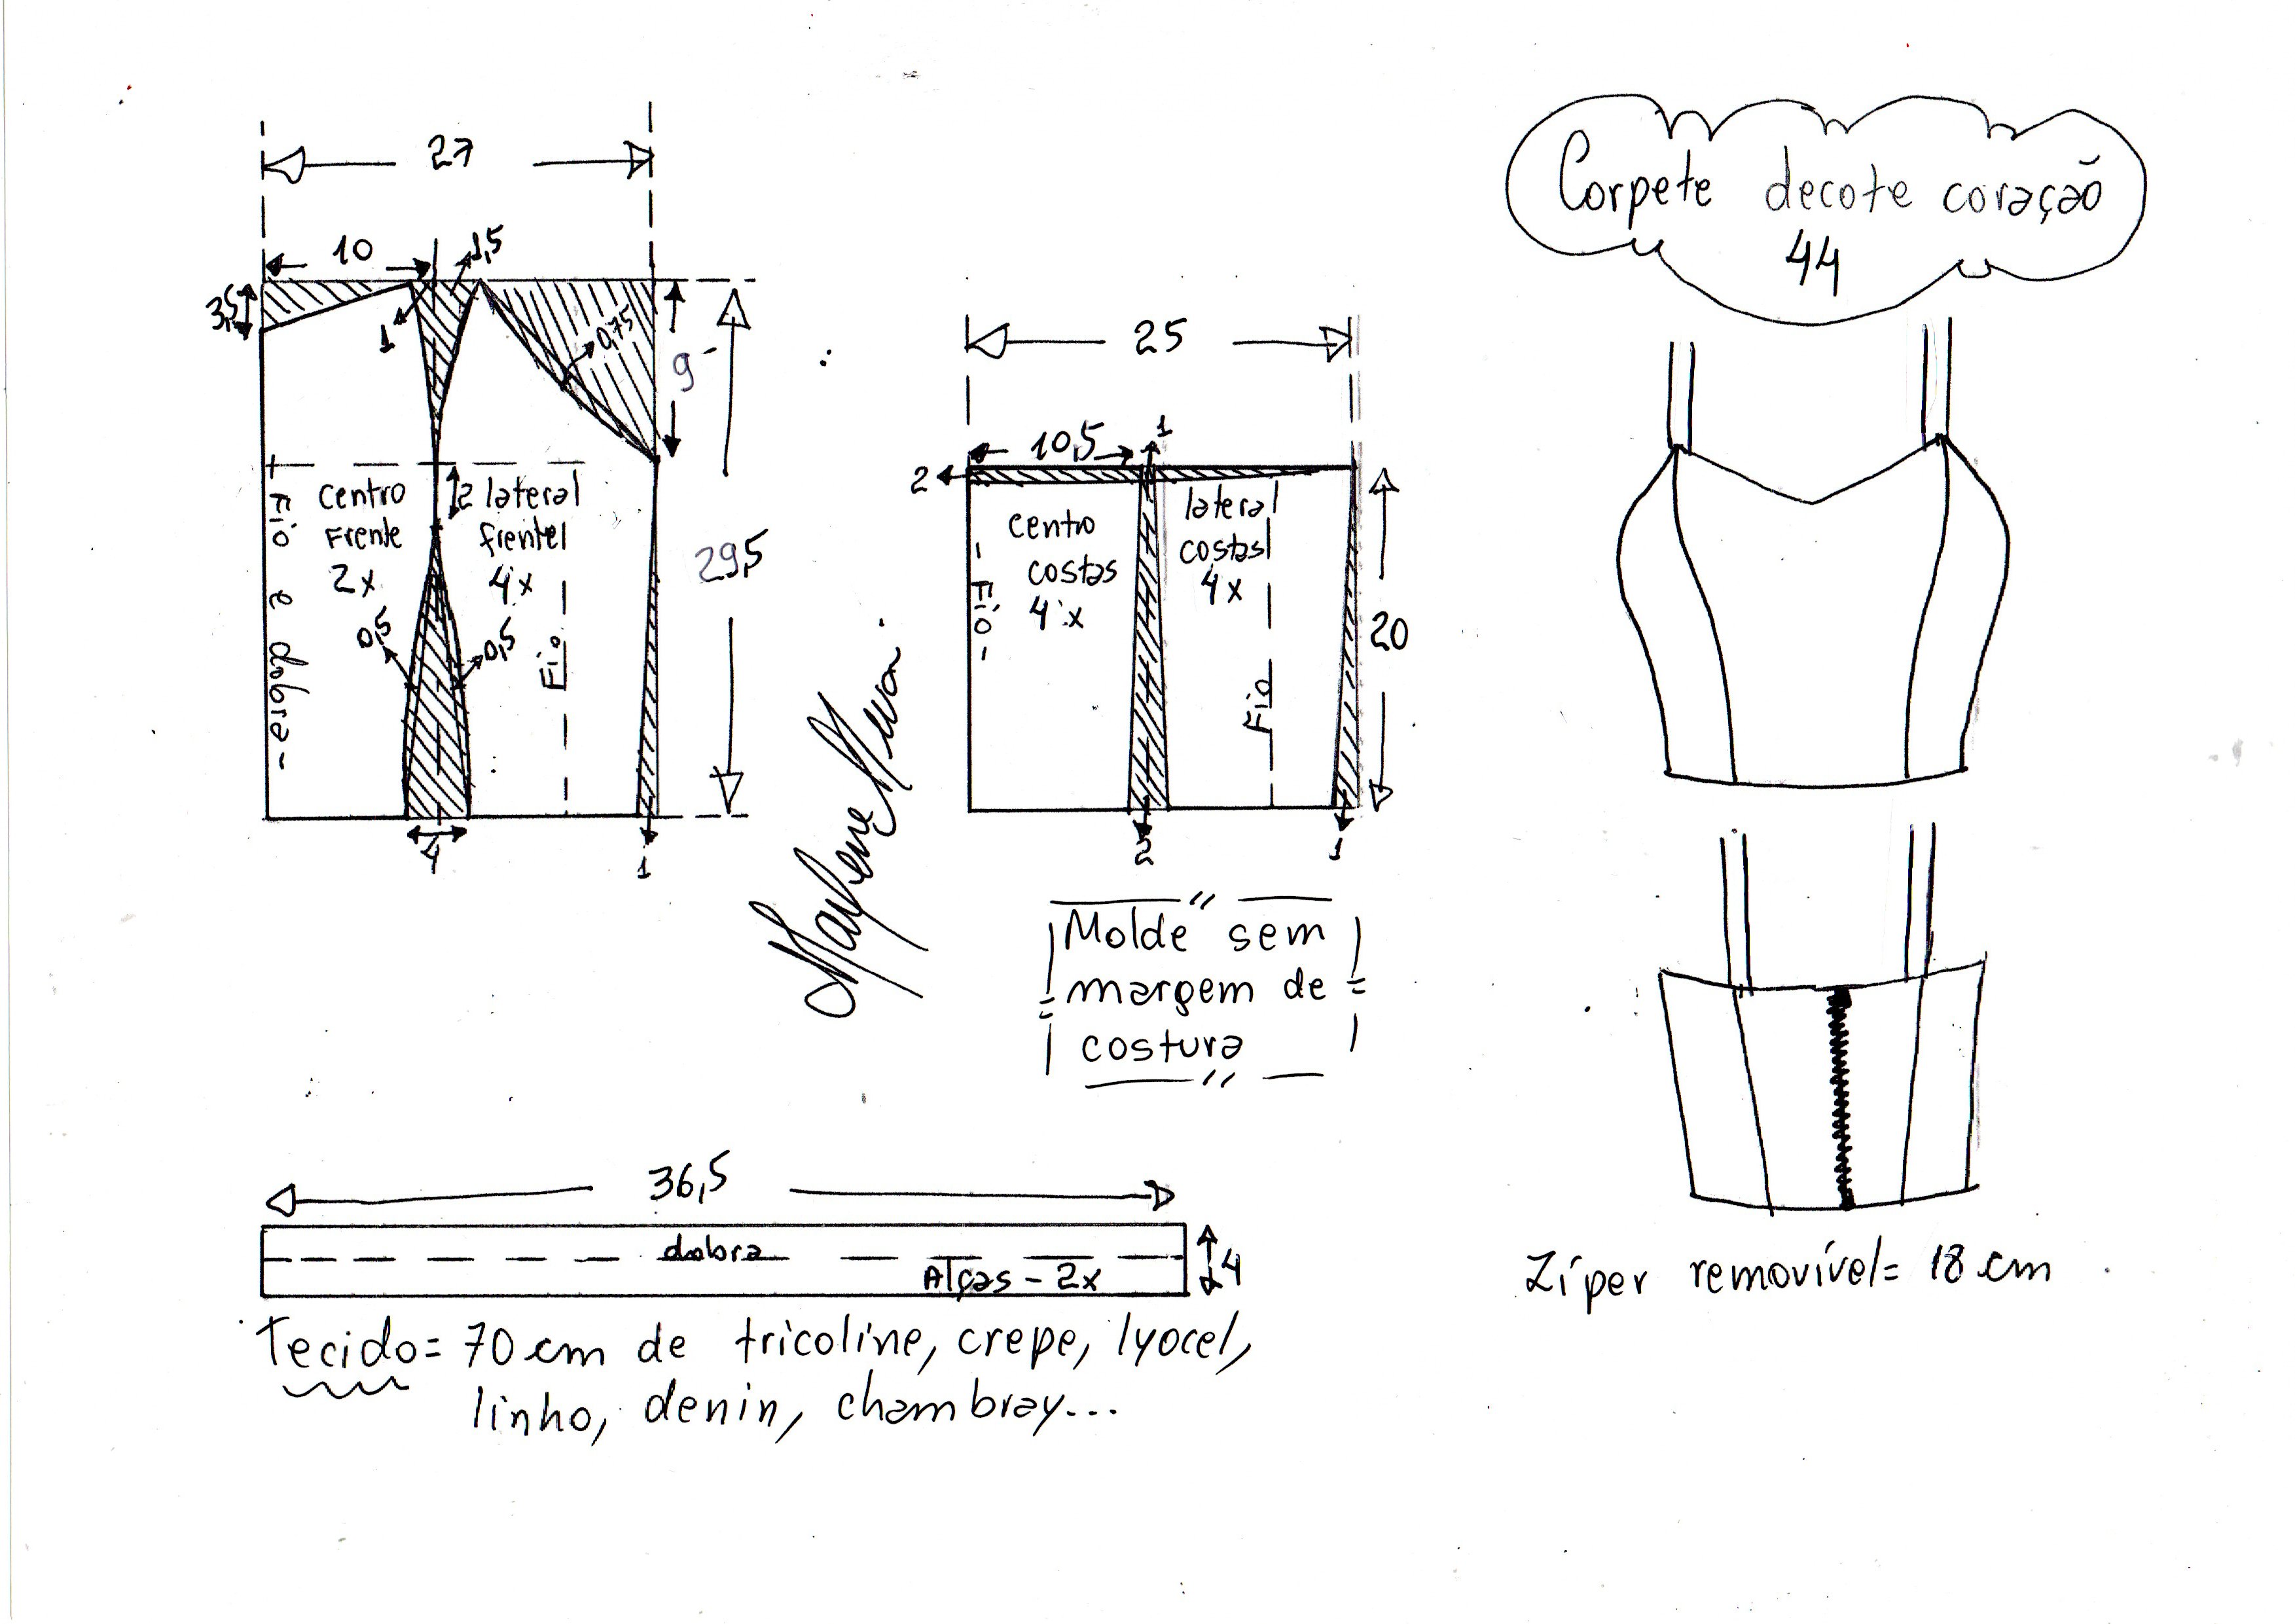 Corpete decote coração
44
27
10
1,5
3,5
1
0,75
9
29,5
Fio e dobra
centro
Frente
2x
2
lateral
frente
4x
0,5
0,5
Fio
4
1
25
10,5
1
2
Fio
centro
costas
4x
lateral
costas
4x
Fio
20
2
1
Marlene Mukai
Molde sem
margem de
costura
36,5
dobra
Alças - 2x
4
Tecido = 70 cm de tricoline, crepe, lyocel,
linho, denin, chambray...
Zíper removível = 18 cm